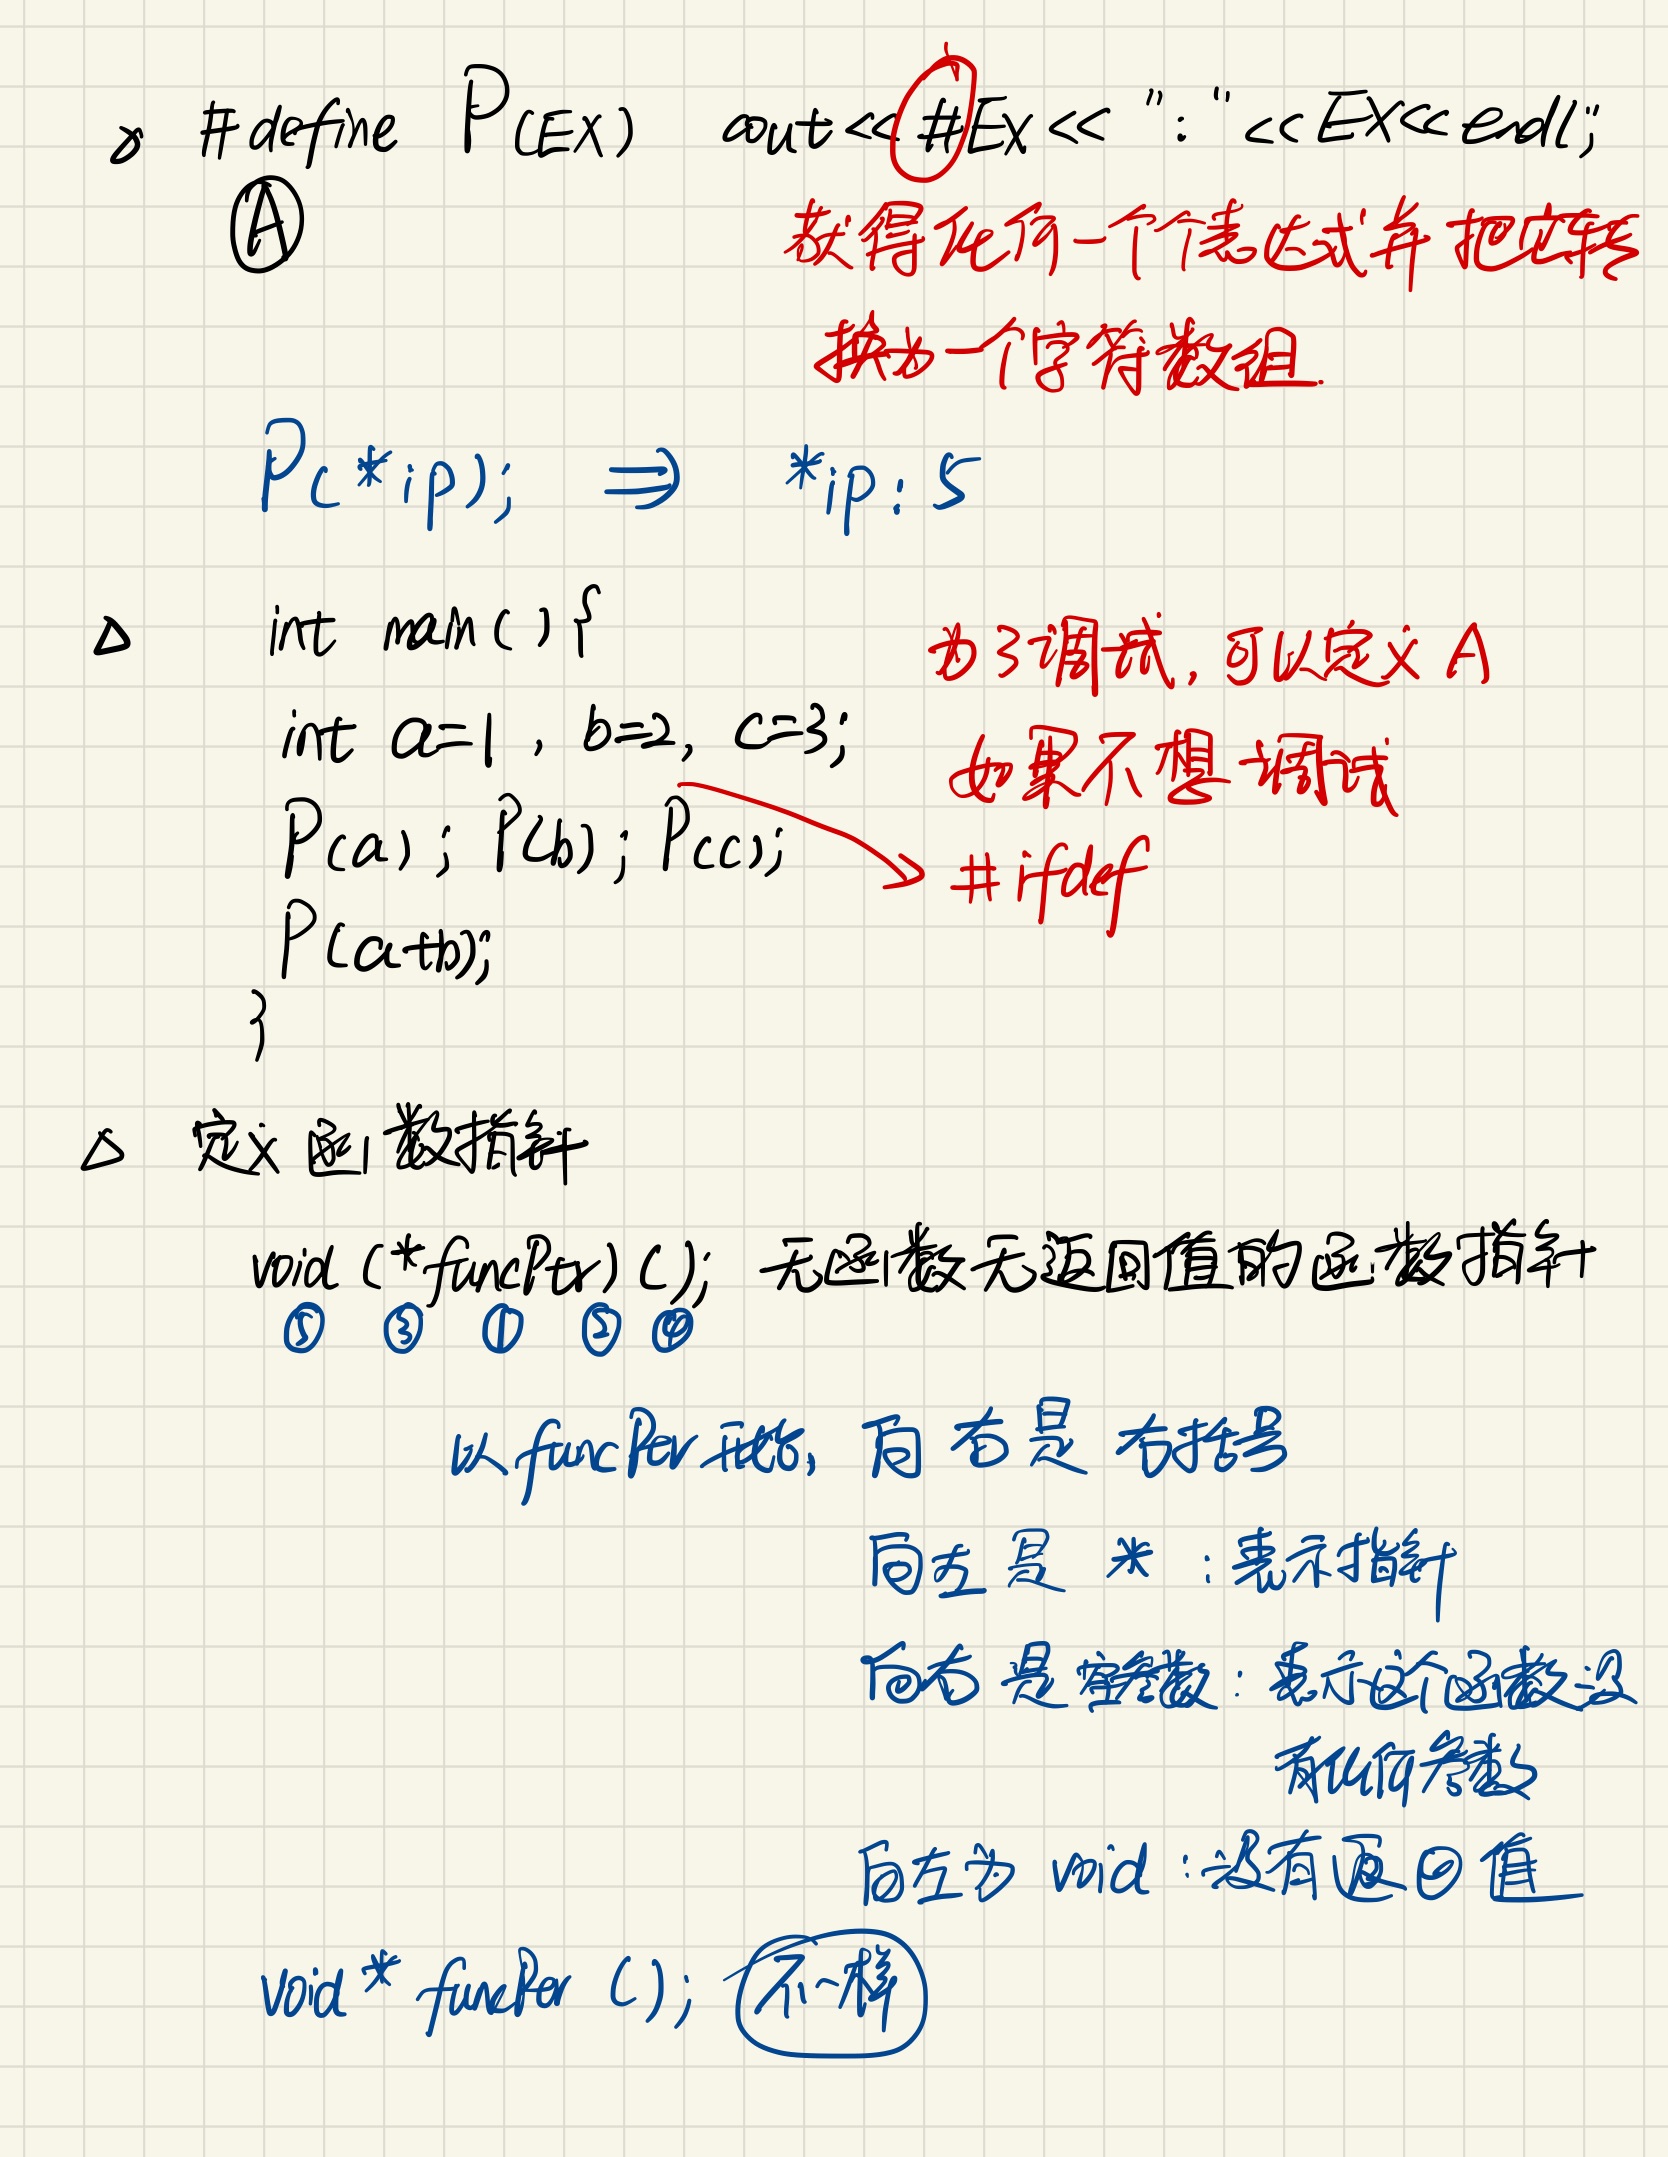 #define P(EX) cout<< #EX << ":" << EX<<endl;
A
获得任何一个个表达式并把它转
换为一个字符数组.
P(*ip); ⇒ *ip: 5
△ int main() {
为了调试, 可以定义 A
int a=1, b=2, c=3;
如果不想调试
P(a); P(b); P(c);
#ifdef
P(a+b);
}
△ 定义函数指针
void (*funcPtr) (); 无函数无返回值的函数指针
⑤ ③ ① ② ④
以 funcPer 开始, 向右是 右括号
向左是 * : 表示指针
向右是空参数: 表示这个函数没
有任何参数
向左为 void : 没有返回值
void* funcPer (); 不一样